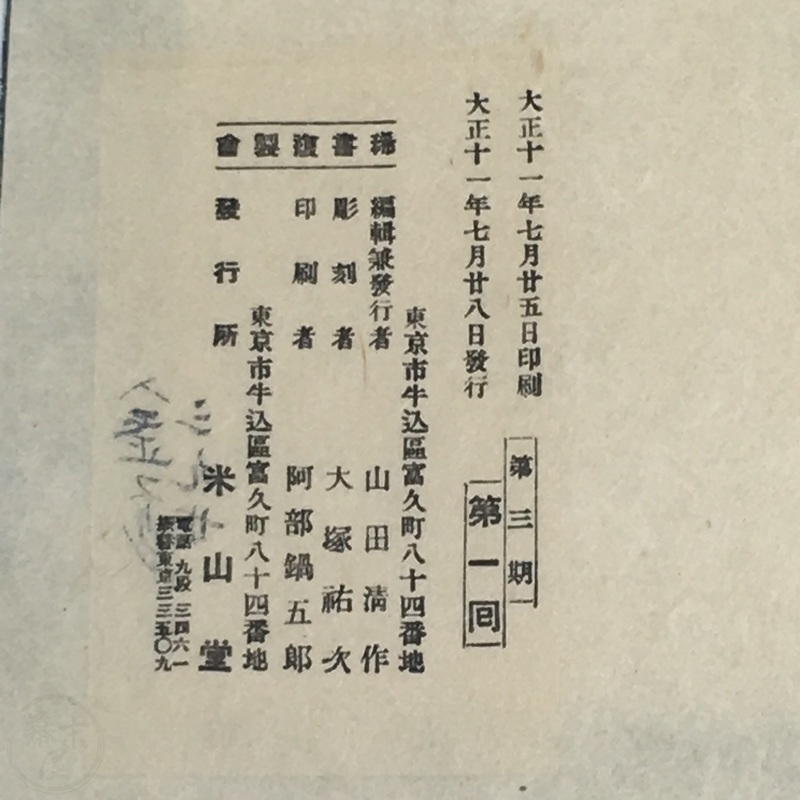 大正十一年七月廿五日印刷
大正十一年七月廿八日發行
第三期
第一回
稀書複製會
東京市牛込區富久町八十四番地
編輯兼發行者 山田清作
彫刻者 大塚祐次
印刷者 阿部鍋五郎
東京市牛込區富久町八十四番地
發行所 米山堂
電話九段三四六一
振替東京三三五〇九